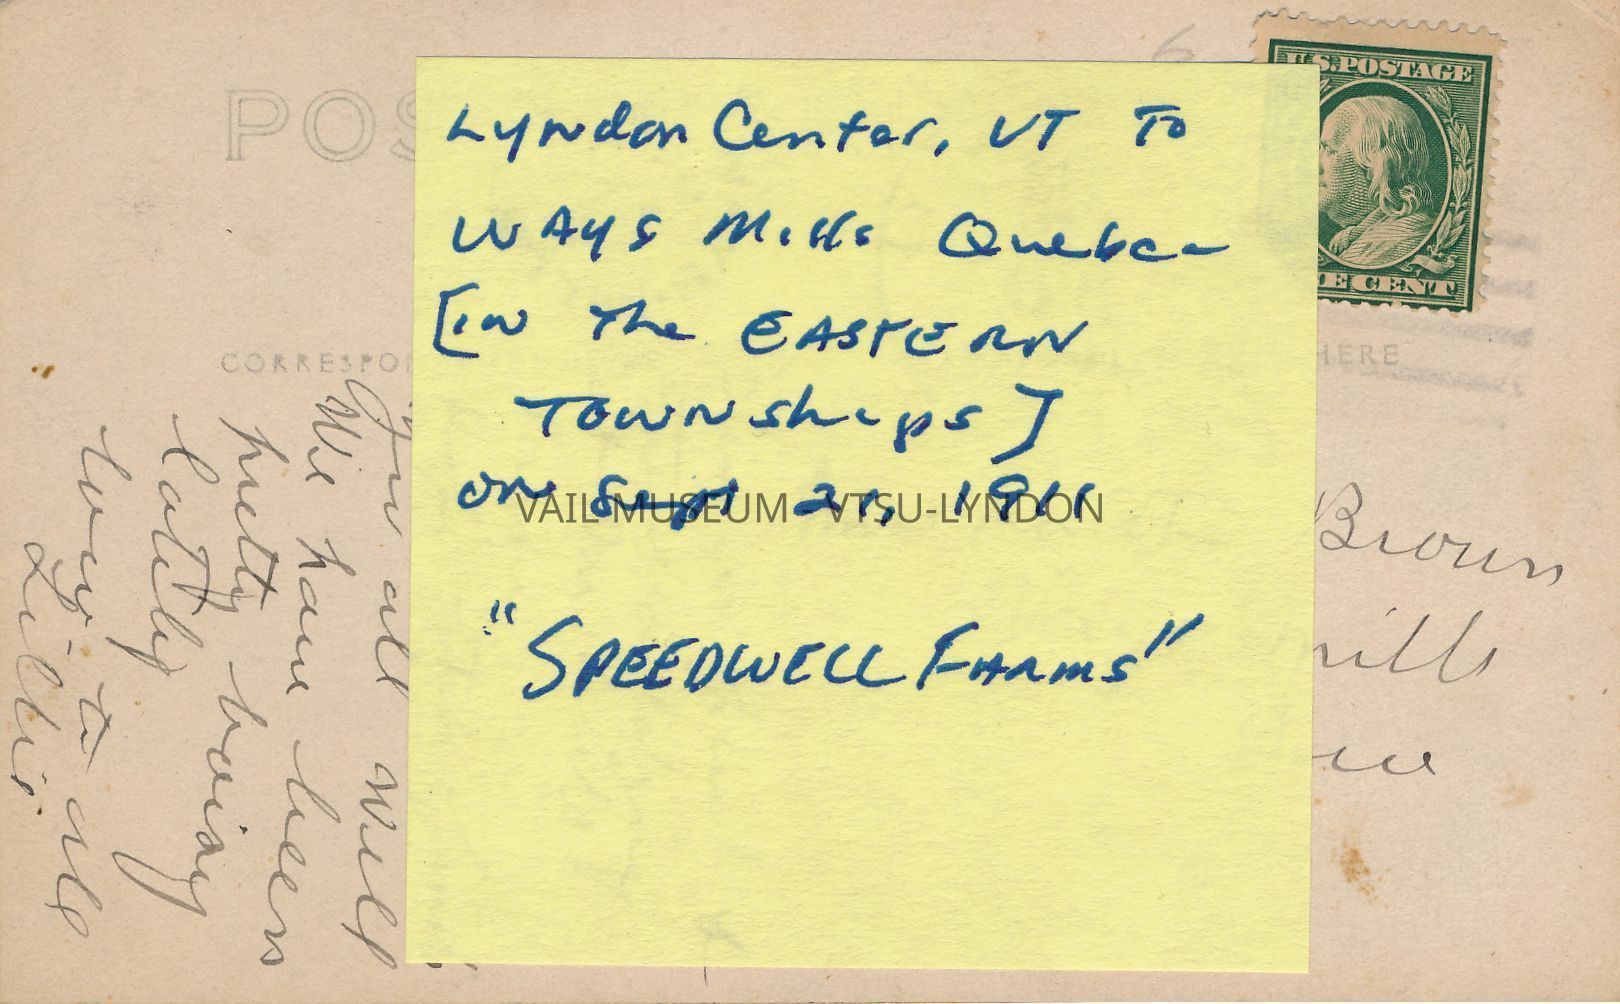 POS
CORRESPON
HERE
U.S. POSTAGE
E CENT
6
Lyndon Center, VT To
Ways Mills Quebec
[in The EASTERN
TOWNships]
on Sept 21, 1911
"SPEEDWELL FARMS"
VAIL MUSEUM - VTSU-LYNDON
you all well
We have been
pretty busy
lately
Love to all
Lillie.
Brown
ills
ue